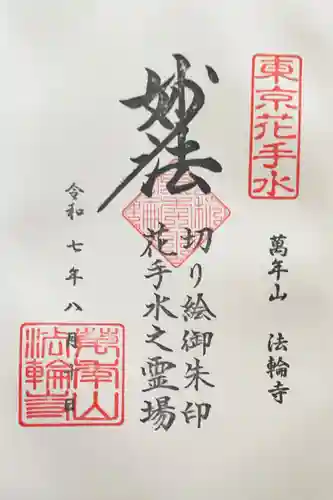 東京花手水
萬年山 法輪寺
妙法
切り絵御朱印
花手水之霊場
令和七年八月十日
萬年山
法輪寺